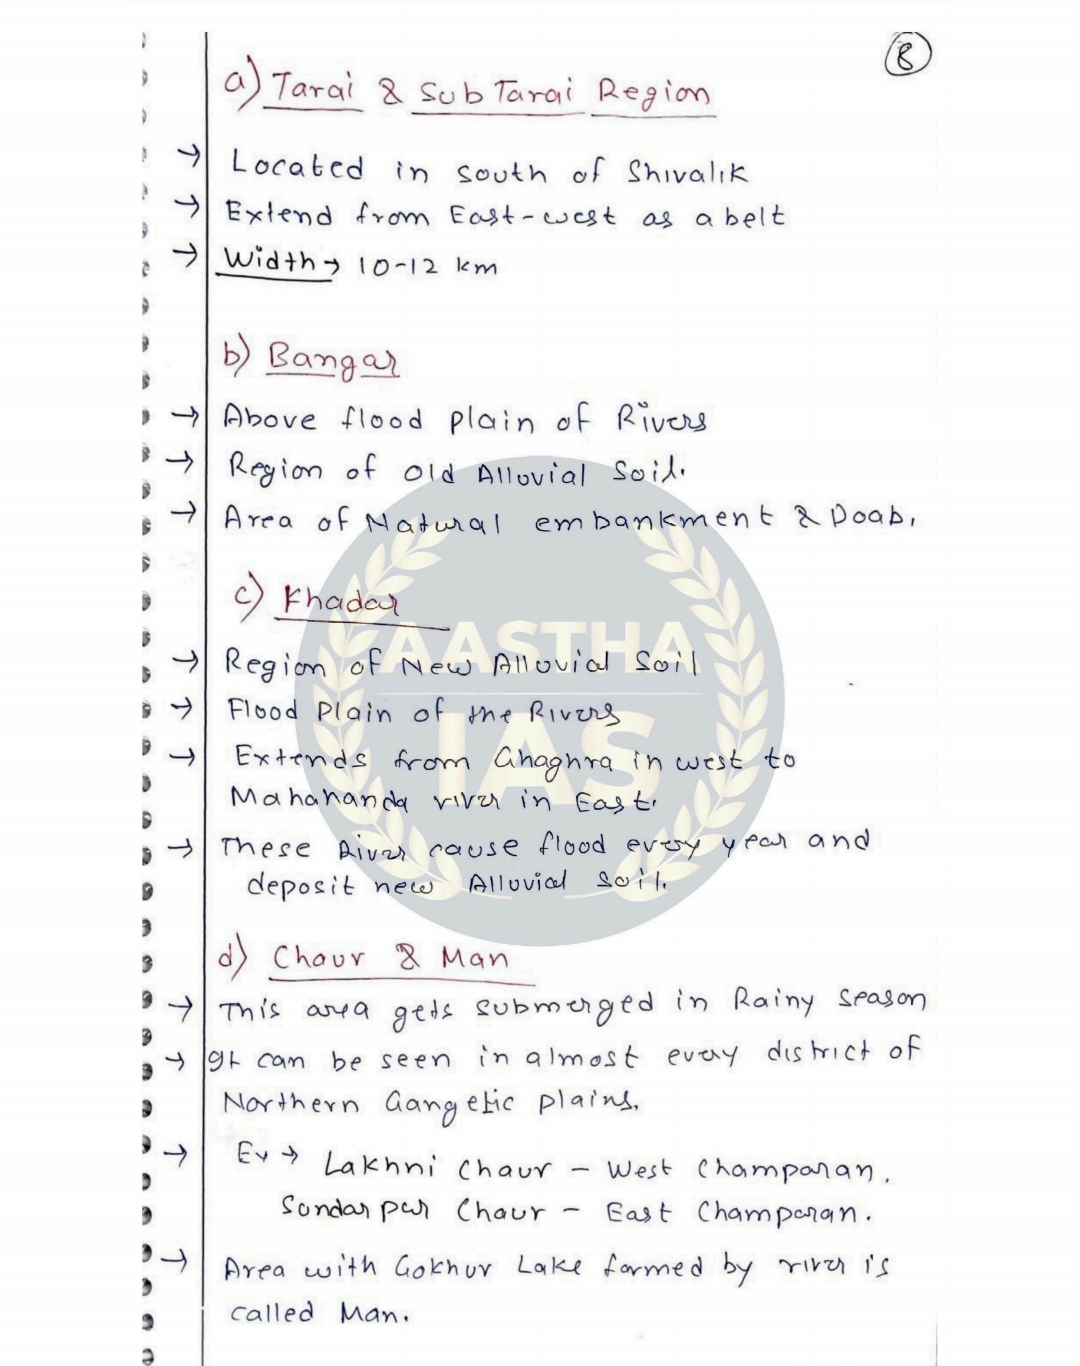 8
a) Tarai & Sub Tarai Region
→ Located in south of Shivalik
→ Extend from East-west as a belt
→ Width → 10-12 km
b) Bangar
→ Above flood plain of Rivers
→ Region of Old Alluvial Soil.
→ Area of Natural embankment & Doab.
c) Khadar
→ Region of New Alluvial Soil
→ Flood Plain of the Rivers
→ Extends from Ghaghra in west to
Mahananda river in East.
→ These River cause flood every year and
deposit new Alluvial soil.
d) Chaur & Man
→ This area gets submerged in Rainy season
→ It can be seen in almost every district of
Northern Gangetic plains.
→ Ex → Lakhni Chaur - West Champaran.
Sundarpur Chaur - East Champaran.
→ Area with Gokhur Lake formed by river is
called Man.
AASTHA
IAS